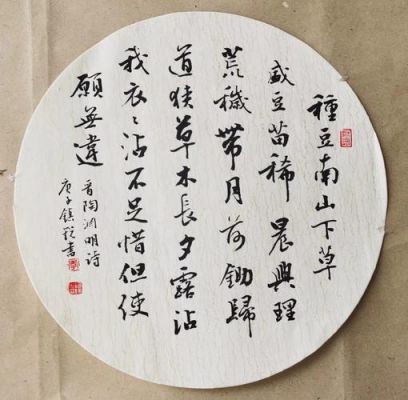 種豆南山下草
盛豆苗稀晨興理
荒穢帶月荷鋤歸
道狹草木長夕露沾
我衣〻沾不足惜但使
願無違
晋陶渊明詩
庚子鎮書